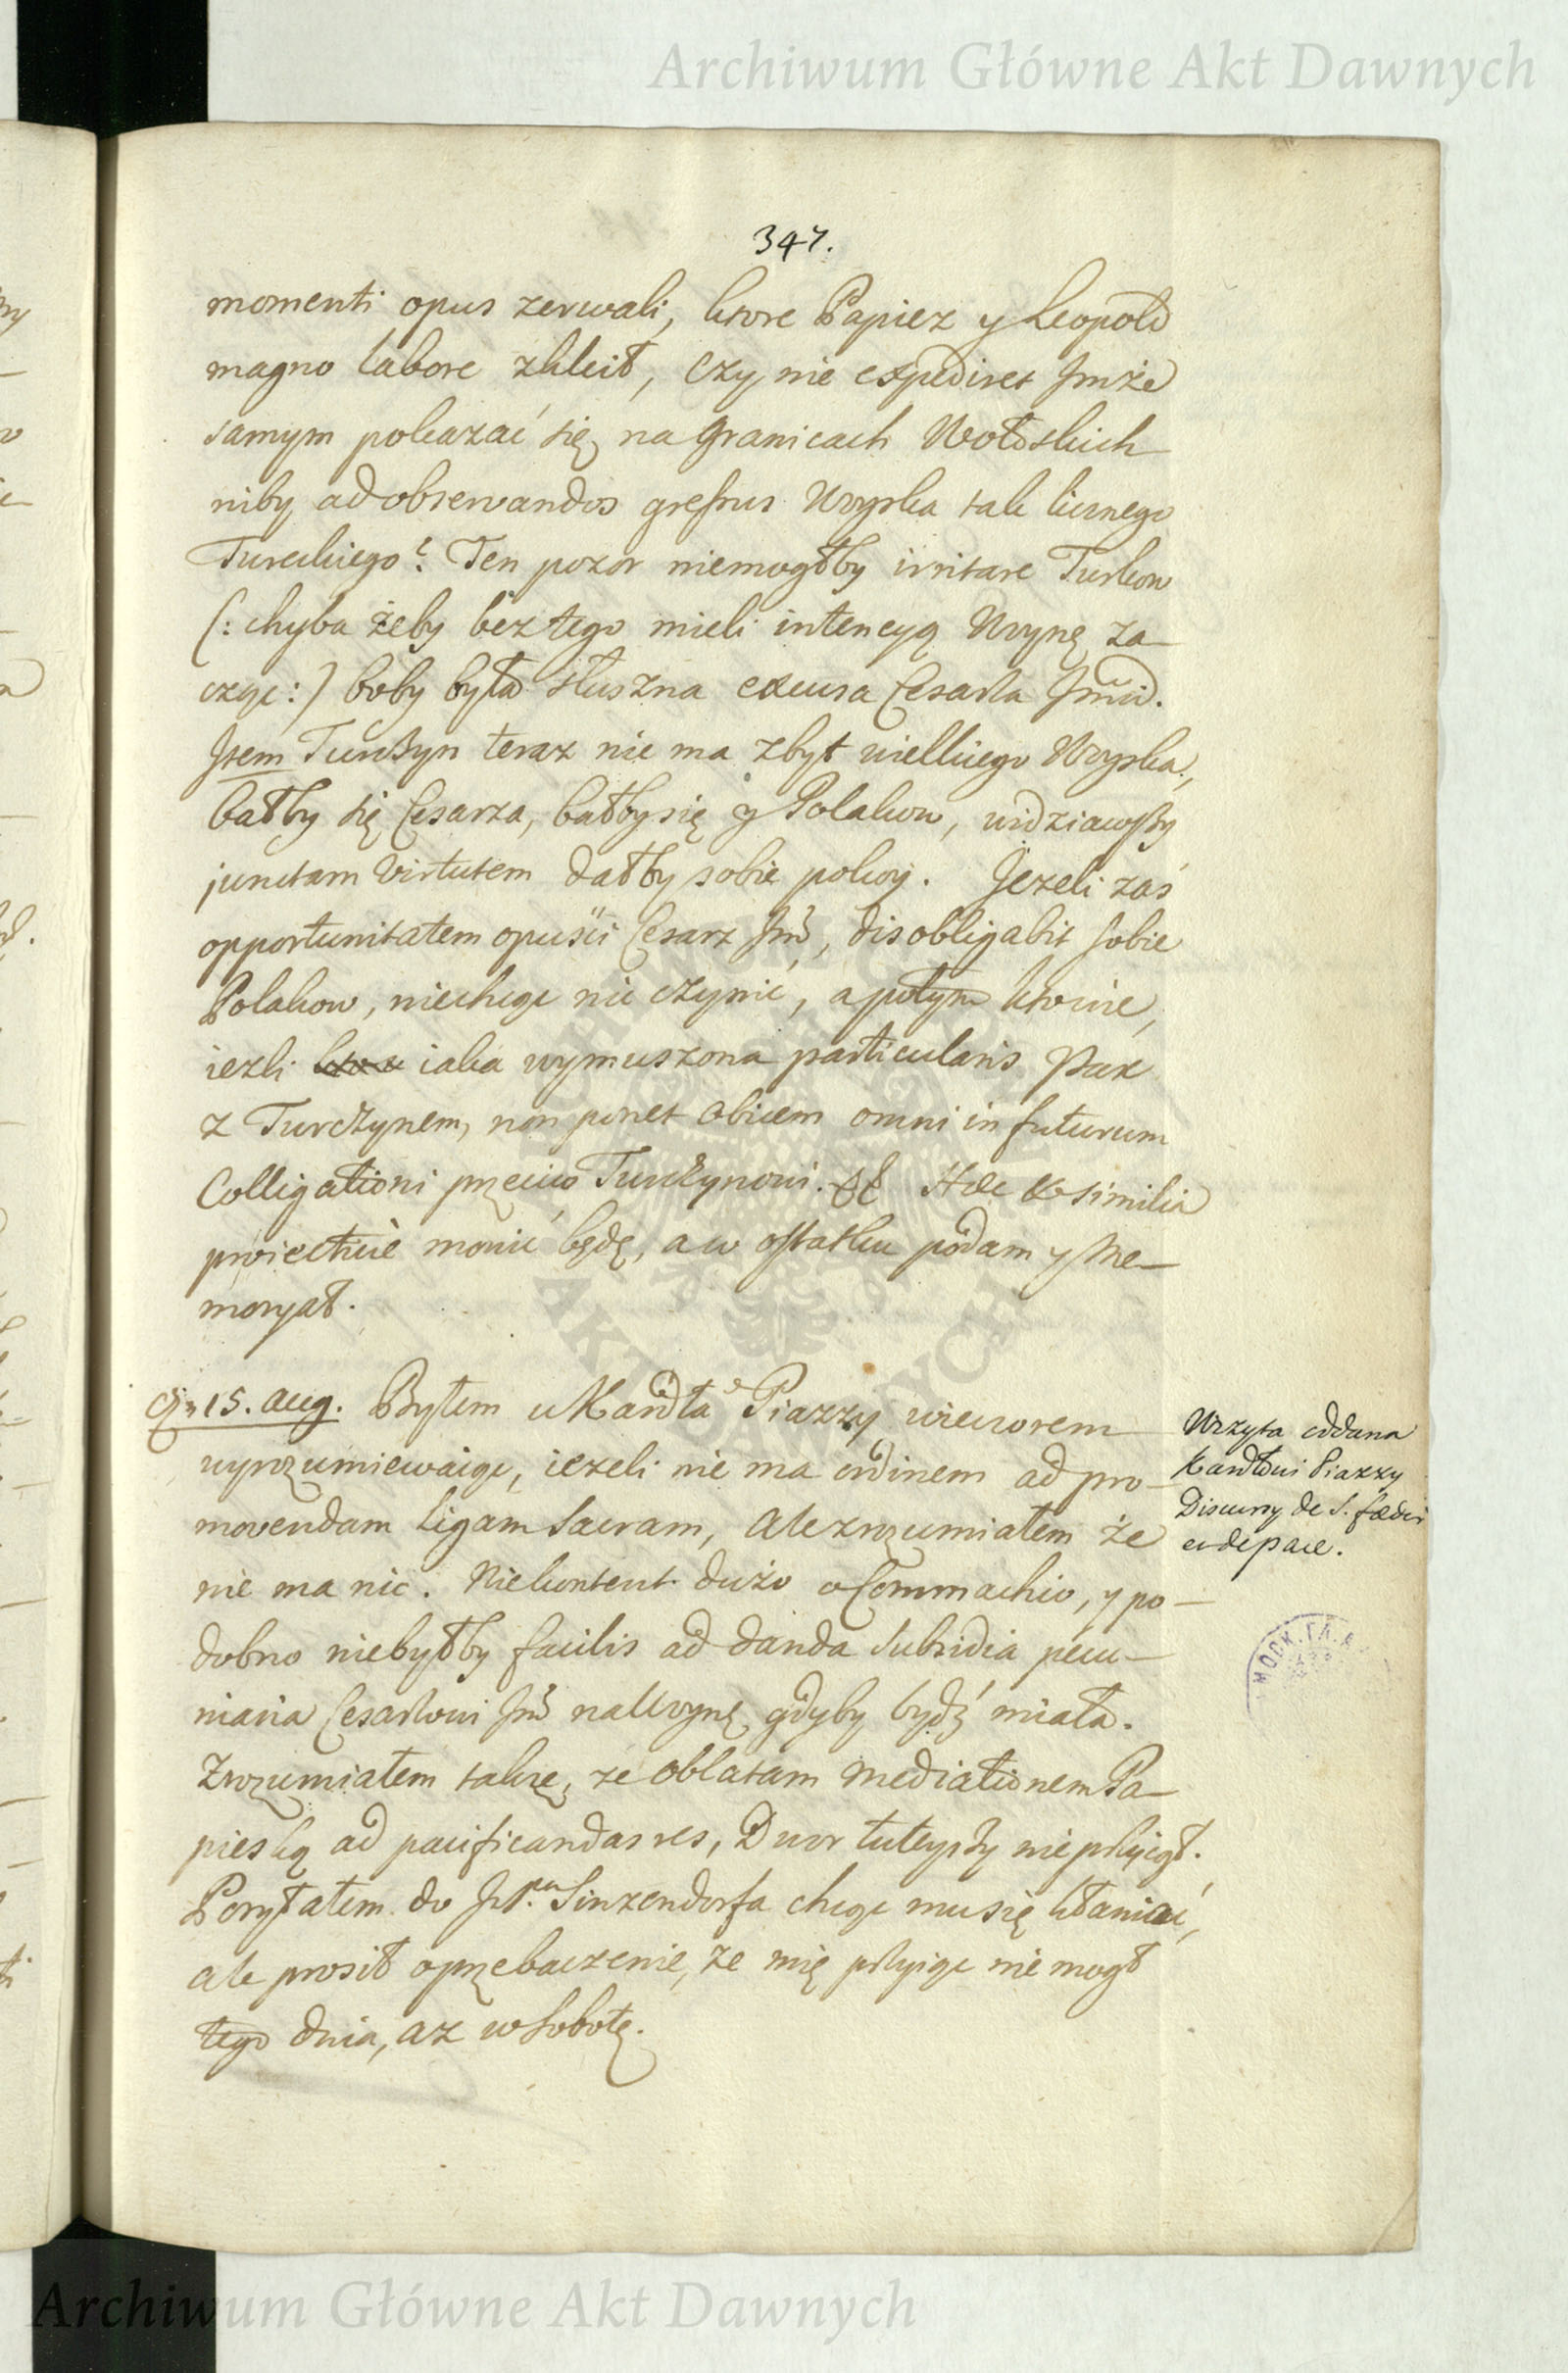 Archiwum Główne Akt Dawnych
347.
momenti opus zerwali, ktore Papiez y Leopold
magno labore zkleił, czy nie expediret Jmże
samym pokazać się na Granicach Wołoskich
niby ad observandos gressus Woyska tak licznego
Tureckiego? Ten pozor niemogłby irritare Turkow
(: chyba żeby bez tego mieli intencyą Woynę za-
cząc :) boby była słuszna excusa Cesarza Jmci.
Item Turczyn teraz nie ma zbyt wielkiego Woyska,
bałby się Cesarza, bałby się y Polakow, widziawszy
junctam virtutem dałby sobie pokoy. Jezeli zaś
opportunitatem opuści Cesarz Jmć, disobligabit sobie
Polakow, niechcąc nic czynić, a potym
iezli iaka wymuszona particularis Pax
z Turczynem, non ponet obicem omni in futurum
Colligationi przeciwko Turczynowi. Hæc & similia
proiective mowić będę, a w ostatku podam y Me-
moryał.
15. Aug. Byłem u Kardła Piazzy wieczorem
wyrozumiewaiąc, iezeli nie ma ordinem ad pro-
movendam Ligam Sacram, Ale zrozumiałem że
nie ma nic. Niekontent dużo o Commachio, y po-
dobno niebyłby facilis ad danda subsidia pecu-
niaria Cesarzowi Jmć na Woynę gdyby bydź miała.
Zrozumiałem także, ze oblatam mediationem Pa-
pieską ad pacificandas res, Dwor tuteyszy nie przyiął.
Posyłałem do Sinzendorfa chcąc mu się kłaniać,
ale prosił o przebaczenie, że mię przyiąc nie mogł
tego dnia, az w Sobotę.
Wizyta oddana
Kardłowi Piazzy
Discursy de S. fœdere
et de pace.
МОСК. ГЛ. А
Archiwum Główne Akt Dawnych